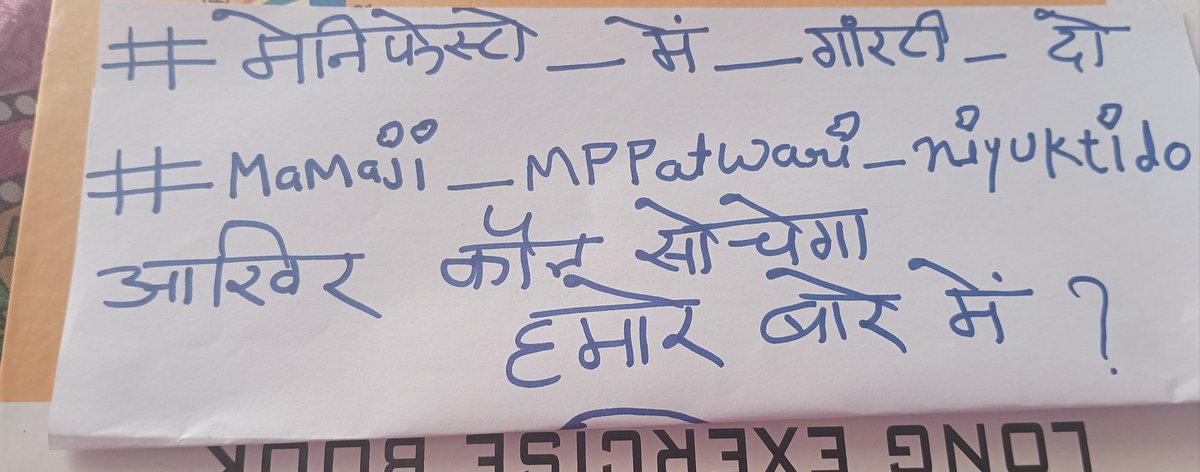 #मेनिफेस्टो_में_गारंटी_दो
#MaMaji_MPPatwari_niyuktido
आखिर कौन सोचेगा
हमारे बारे में ?
LONG EXERCISE BOOK